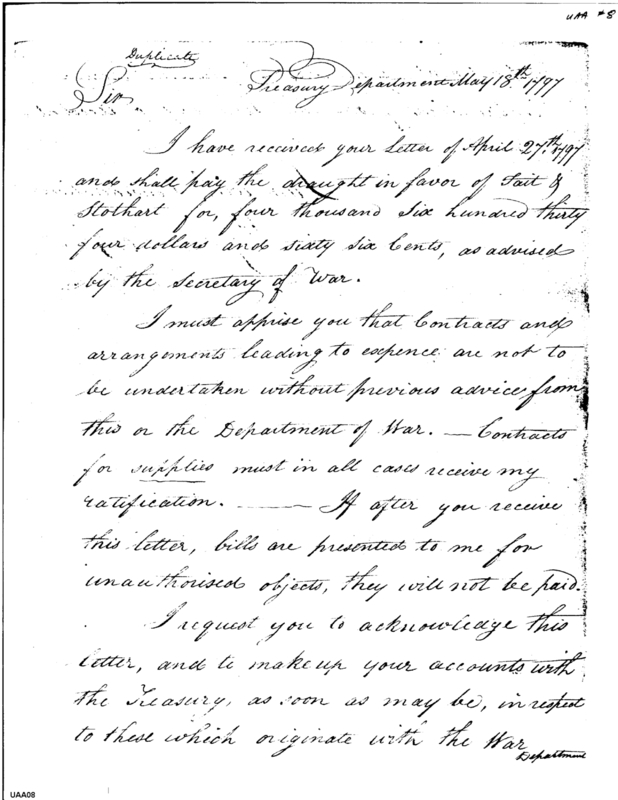 UAA #8
Duplicate
Treasury Department May 18th 1797
Sir
I have received your Letter of April 27th. 1797
and shall pay the draught in favor of Tait &
Stothart for, four thousand six hundred thirty
four dollars and sixty six Cents, as advised
by the Secretary of War.
I must apprise you that Contracts and
arrangements leading to expence are not to
be undertaken without previous advice from
this or the Department of War. — Contracts
for supplies must in all cases receive my
ratification. ——— If after you receive
this letter, bills are presented to me for
unauthorised objects, they will not be paid.
I request you to acknowledge this
letter, and to make up your accounts with
the Treasury, as soon as may be, in respect
to these which originate with the War
Department
UAA08